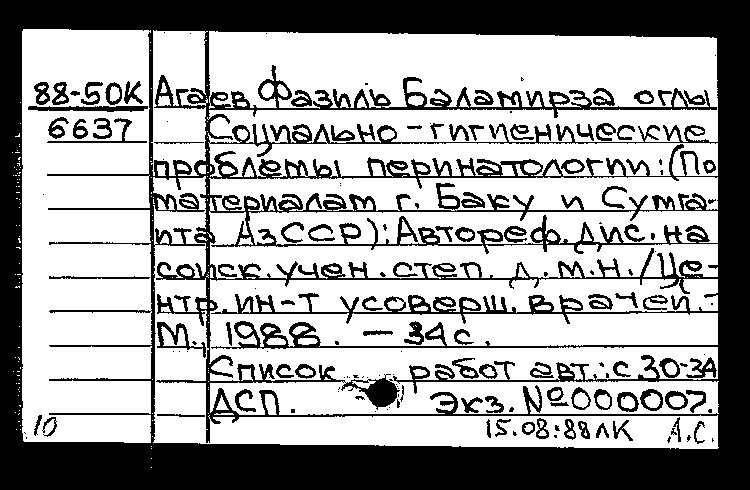 88-50К Агаев, Фазиль Баламирза оглы
6637 Социально-гигиенические
проблемы перинатологии: (По
материалам г. Баку и Сумга-
ита АзССР): Автореф. дис. на
соиск. учен. степ. д.м.н. /Це-
нтр. ин-т усоверш. врачей. -
М., 1988. — 34с.
Список работ авт.: с 30-34
ДСП. Экз. №000007.
10 15.08.88ЛК А.С.